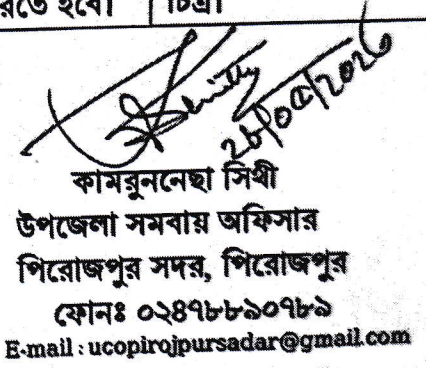 রতে হবে। চিত্র।
কামরুননেছা সিথী
উপজেলা সমবায় অফিসার
পিরোজপুর সদর, পিরোজপুর
ফোনঃ ০২৪৭৮৮৯০৭৮৯
E-mail : ucopirojpursadar@gmail.com